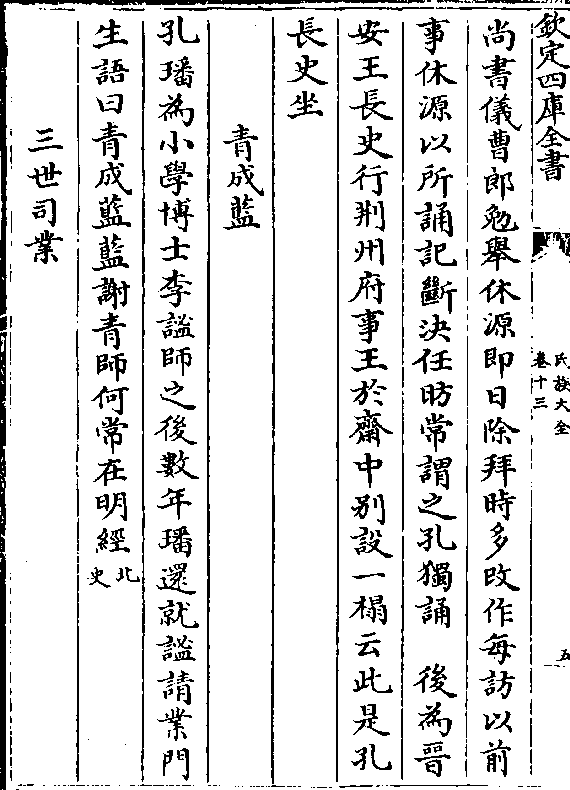 欽定四庫全書
氏族大全
卷十三
五
尚書儀曹郎勉舉休源即日除拜時多改作每訪以前
事休源以所誦記斷決任昉常謂之孔獨誦　後為晉
安王長史行荆州府事王於齋中别設一榻云此是孔
長史坐
青成藍
孔璠為小學博士李謐師之後數年璠還就謐請業門
生語曰青成藍藍謝青師何常在明經北史
三世司業